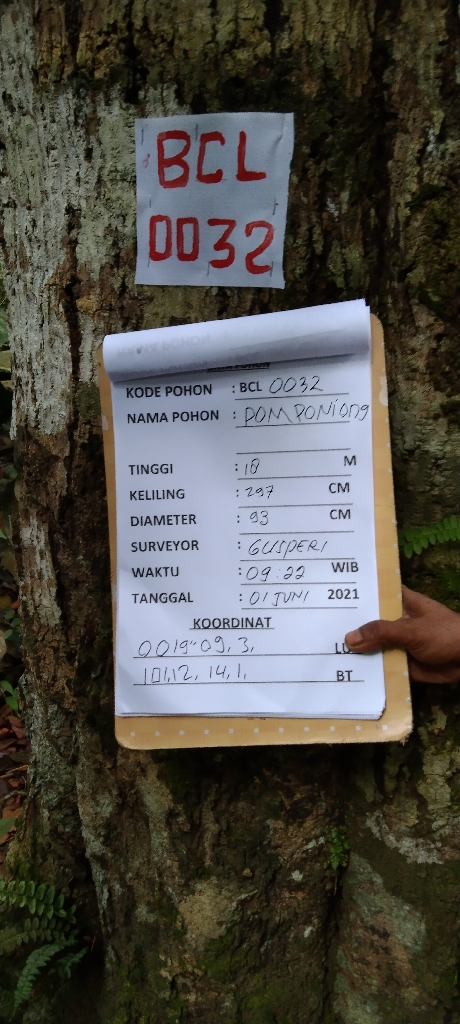 BCL
0032
KODE POHON : BCL 0032
NAMA POHON : POMPONIONG
TINGGI : 18 M
KELILING : 297 CM
DIAMETER : 93 CM
SURVEYOR : GUSPERI
WAKTU : 09:22 WIB
TANGGAL : 01 JUNI 2021
KOORDINAT
0019"09,3,
101,12, 14,1, BT